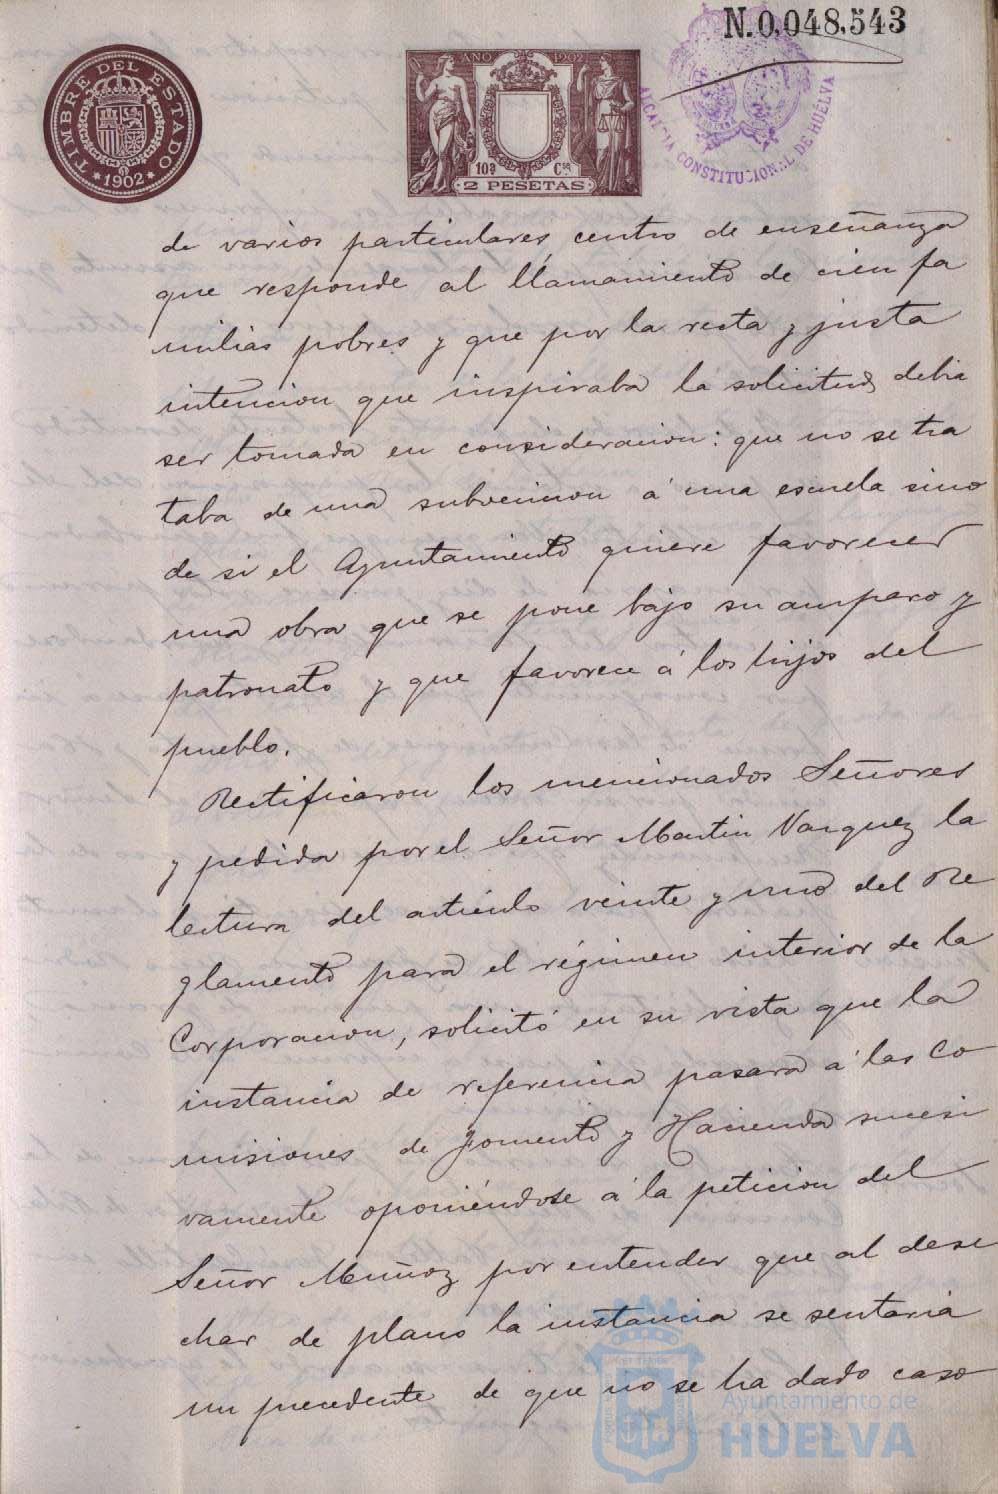 N.0,048,543
TIMBRE DEL ESTADO
*1902*
AÑO 1902
10ª Cse
2 PESETAS
ALCALDIA CONSTITUCIONAL DE HUELVA
de varios particulares centro de enseñanza
que responde al llamamiento de cien fa
milias pobres y que por la recta y justa
intencion que inspiraba la solicitud debia
ser tomada en consideracion: que no se tra
taba de una subvencion á una escuela sino
de si el Ayuntamiento quiere favorecer
una obra que se pone bajo su amparo y
patronato y que favorece á los hijos del
pueblo.
Rectificaron los mencionados Señores
y pedida por el Señor Martin Vazquez la
lectura del articulo veinte y uno del Re
glamento para el régimen interior de la
Corporacion, solicitó en su vista que la
instancia de referencia pasara á las Co
misiones de Fomento y Hacienda sucesi
vamente oponiéndose á la peticion del
Señor Muñoz por entender que al dese
char de plano la instancia se sentaria
un precedente de que no se ha dado caso
Ayuntamiento de
HUELVA